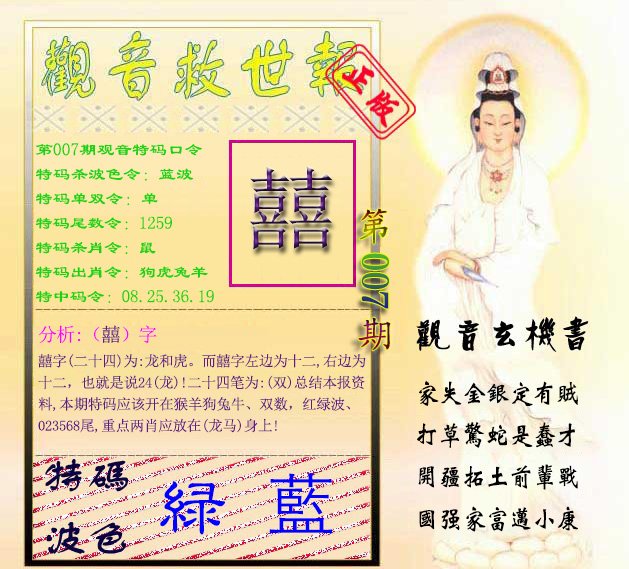 觀音救世報
正版
第007期观音特码口令
特码杀波色令: 蓝波
特码单双令: 单
特码尾数令: 1259
特码杀肖令: 鼠
特码出肖令: 狗虎兔羊
特中码令: 08.25.36.19
囍
第007期
分析:（囍）字
囍字(二十四)为:龙和虎。而囍字左边为十二,右边为
十二，也就是说24(龙)!二十四笔为:(双)总结本报资
料,本期特码应该开在猴羊狗兔牛、双数，红绿波、
023568尾,重点两肖应放在(龙马)身上!
特碼
波色
緑 藍
觀音玄機書
家失金銀定有賊
打草驚蛇是蠢才
開疆拓土前輩戰
國强家富邁小康